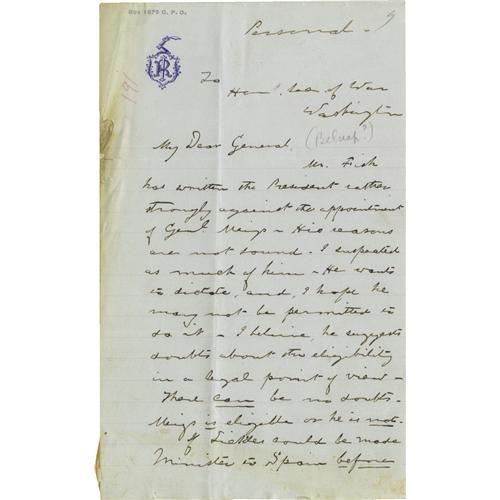 Box 1873 G. P. O.
Personal - 9
191
To
Honl. Sec of War
Washington
(Belnap?)
My Dear General.
Mr. Fish
has written the President rather
strongly against the appointment
of Genl. Meigs - His reasons
are not sound. I suspected
as much of him - He wants
to dictate, and, I hope he
may not be permitted to
do it - I believe, he suggests
doubts about the eligibility
in a legal point of view -
There can be no doubts.
Meigs is eligible or he is not.
If Sickles could be made
Minister to Spain before